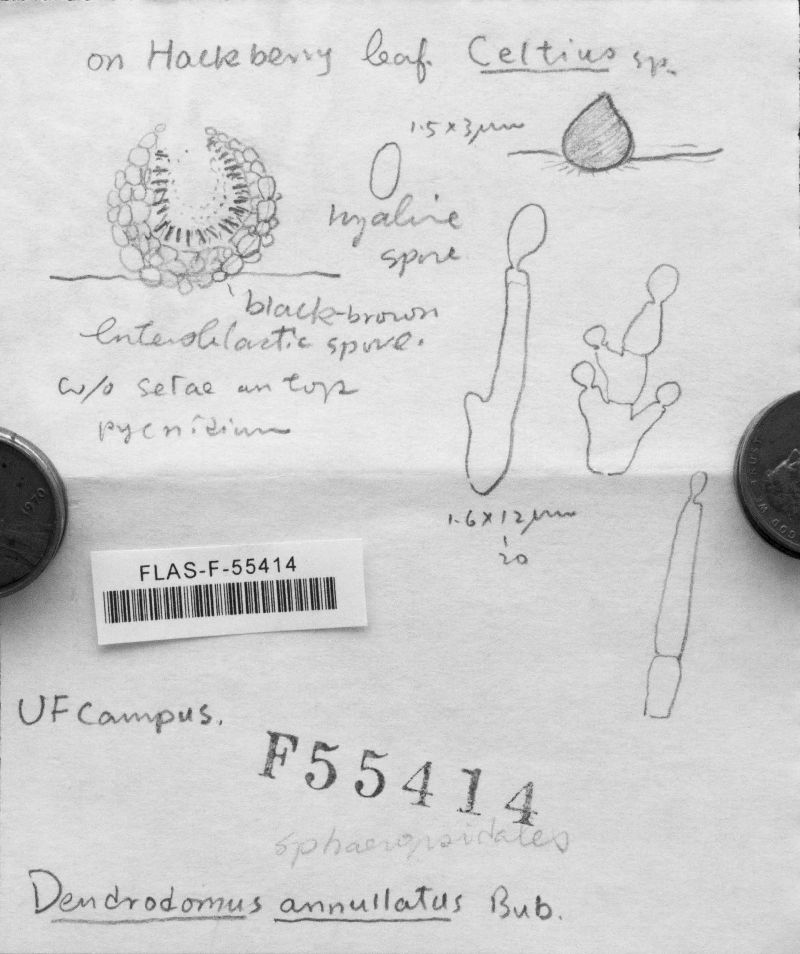 on Hackberry leaf. Celtius sp.
1.5 x 3 µm
hyaline
spore
black-brown
Enteroblastic spore.
w/o setae on top
pycnidium
1.6 x 12 µm
20
FLAS-F-55414
UF campus.
F55414
sphaeropsidales
Dendrodomus annullatus Bub.